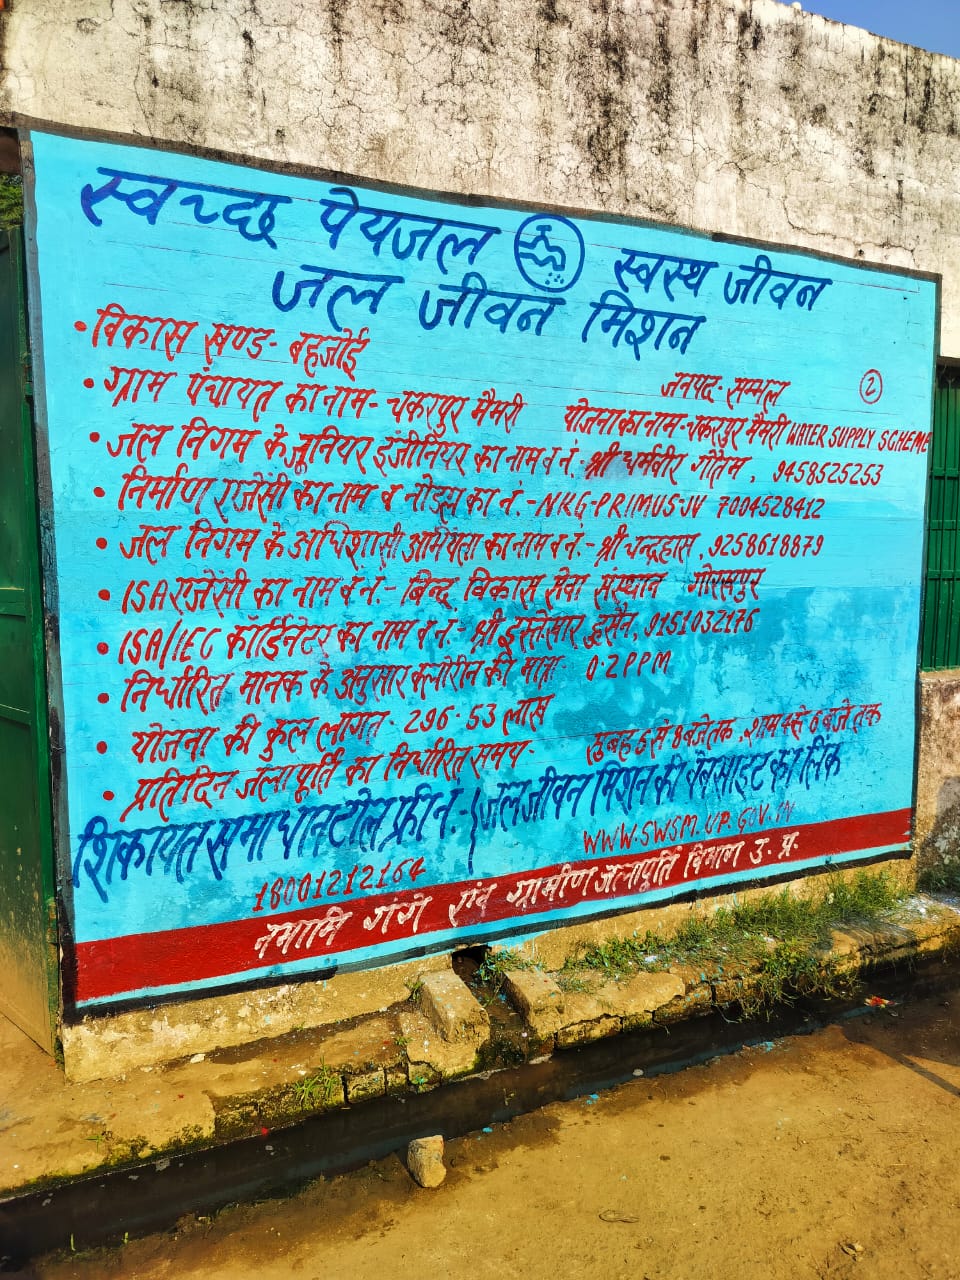 स्वच्छ पेयजल स्वस्थ जीवन
जल जीवन मिशन
• विकास खण्ड- बहजोई जनपद- सम्भल (2)
• ग्राम पंचायत का नाम- चकरपुर मैमरी योजना का नाम- चकरपुर मैमरी WATER SUPPLY SCHEME
• जल निगम के जूनियर इंजीनियर का नाम व नं.- श्री धर्मवीर गौतम, 9458525253
• निर्माण एजेंसी का नाम व नोडल का नं.- NKG-PRIMUS-JV 7004528412
• जल निगम के अधिशासी अभियंता का नाम व नं.- श्री चन्द्रहास, 9258618879
• ISA एजेंसी का नाम व नं.- बिन्दू विकास सेवा संस्थान गोरखपुर
• ISA/IEC कॉर्डिनेटर का नाम व नं.- श्री इस्तेखार हुसैन, 9151032176
• निर्धारित मानक के अनुसार क्लोरीन की मात्रा- 0.2 PPM
• योजना की कुल लागत- 296.53 लाख
• प्रतिदिन जलापूर्ति का निर्धारित समय- सुबह 6 से 8 बजे तक, शाम 4 से 6 बजे तक
शिकायत समाधान टोल फ्री नं.- जल जीवन मिशन की वेबसाइट का लिंक
18001212164 WWW.SWSM.UP.GOV.IN
नमामि गंगे एंव ग्रामीण जलापूर्ति विभाग उ. प्र.